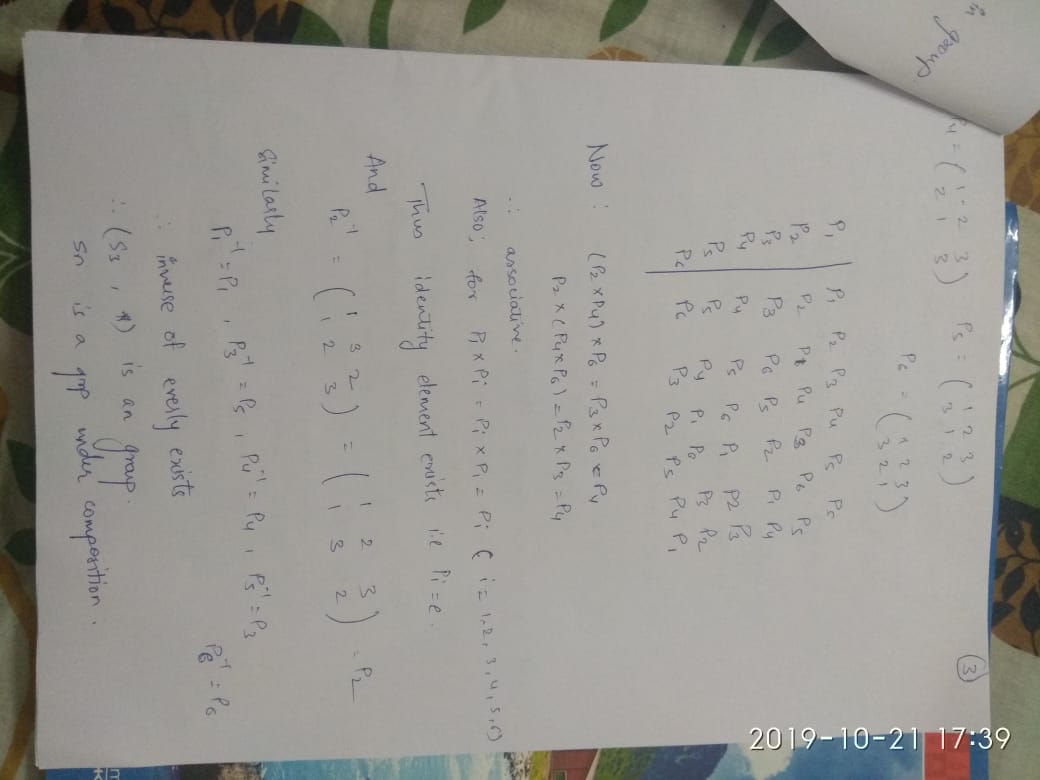 in
group.
P4 = ( 1 2 3 ) P5 = ( 1 2 3 ) (3)
2 1 3 3 1 2
P6 = ( 1 2 3 )
3 2 1
P1 | P1 P2 P3 P4 P5 P5
P2 | P2 P1 P4 P3 P6 P5
P3 | P3 P6 P5 P2 P1 P4
P4 | P4 P5 P6 P1 P2 P3
P5 | P5 P4 P1 P6 P3 P2
P6 | P6 P3 P2 P5 P4 P1
Now : (P2 × P4) × P6 = P3 × P6 = P4
P2 × (P4 × P6) = P2 × P3 = P4
∴ associative.
Also; for P1 × Pi = Pi × P1 = Pi ( i = 1,2, 3, 4, 5, 6)
Thus identity element exists i.e Pi = e.
And
P2⁻¹ = ( 1 3 2 ) = ( 1 2 3 ) = P2
1 2 3 1 3 2
Similarly
P1⁻¹ = P1 , P3⁻¹ = P5 , P4⁻¹ = P4 , P5⁻¹ = P3
P6⁻¹ = P6
∴ inverse of everly exists
∴ (S3 , *) is an group.
Sn is a grp under composition.
2019-10-21 17:39